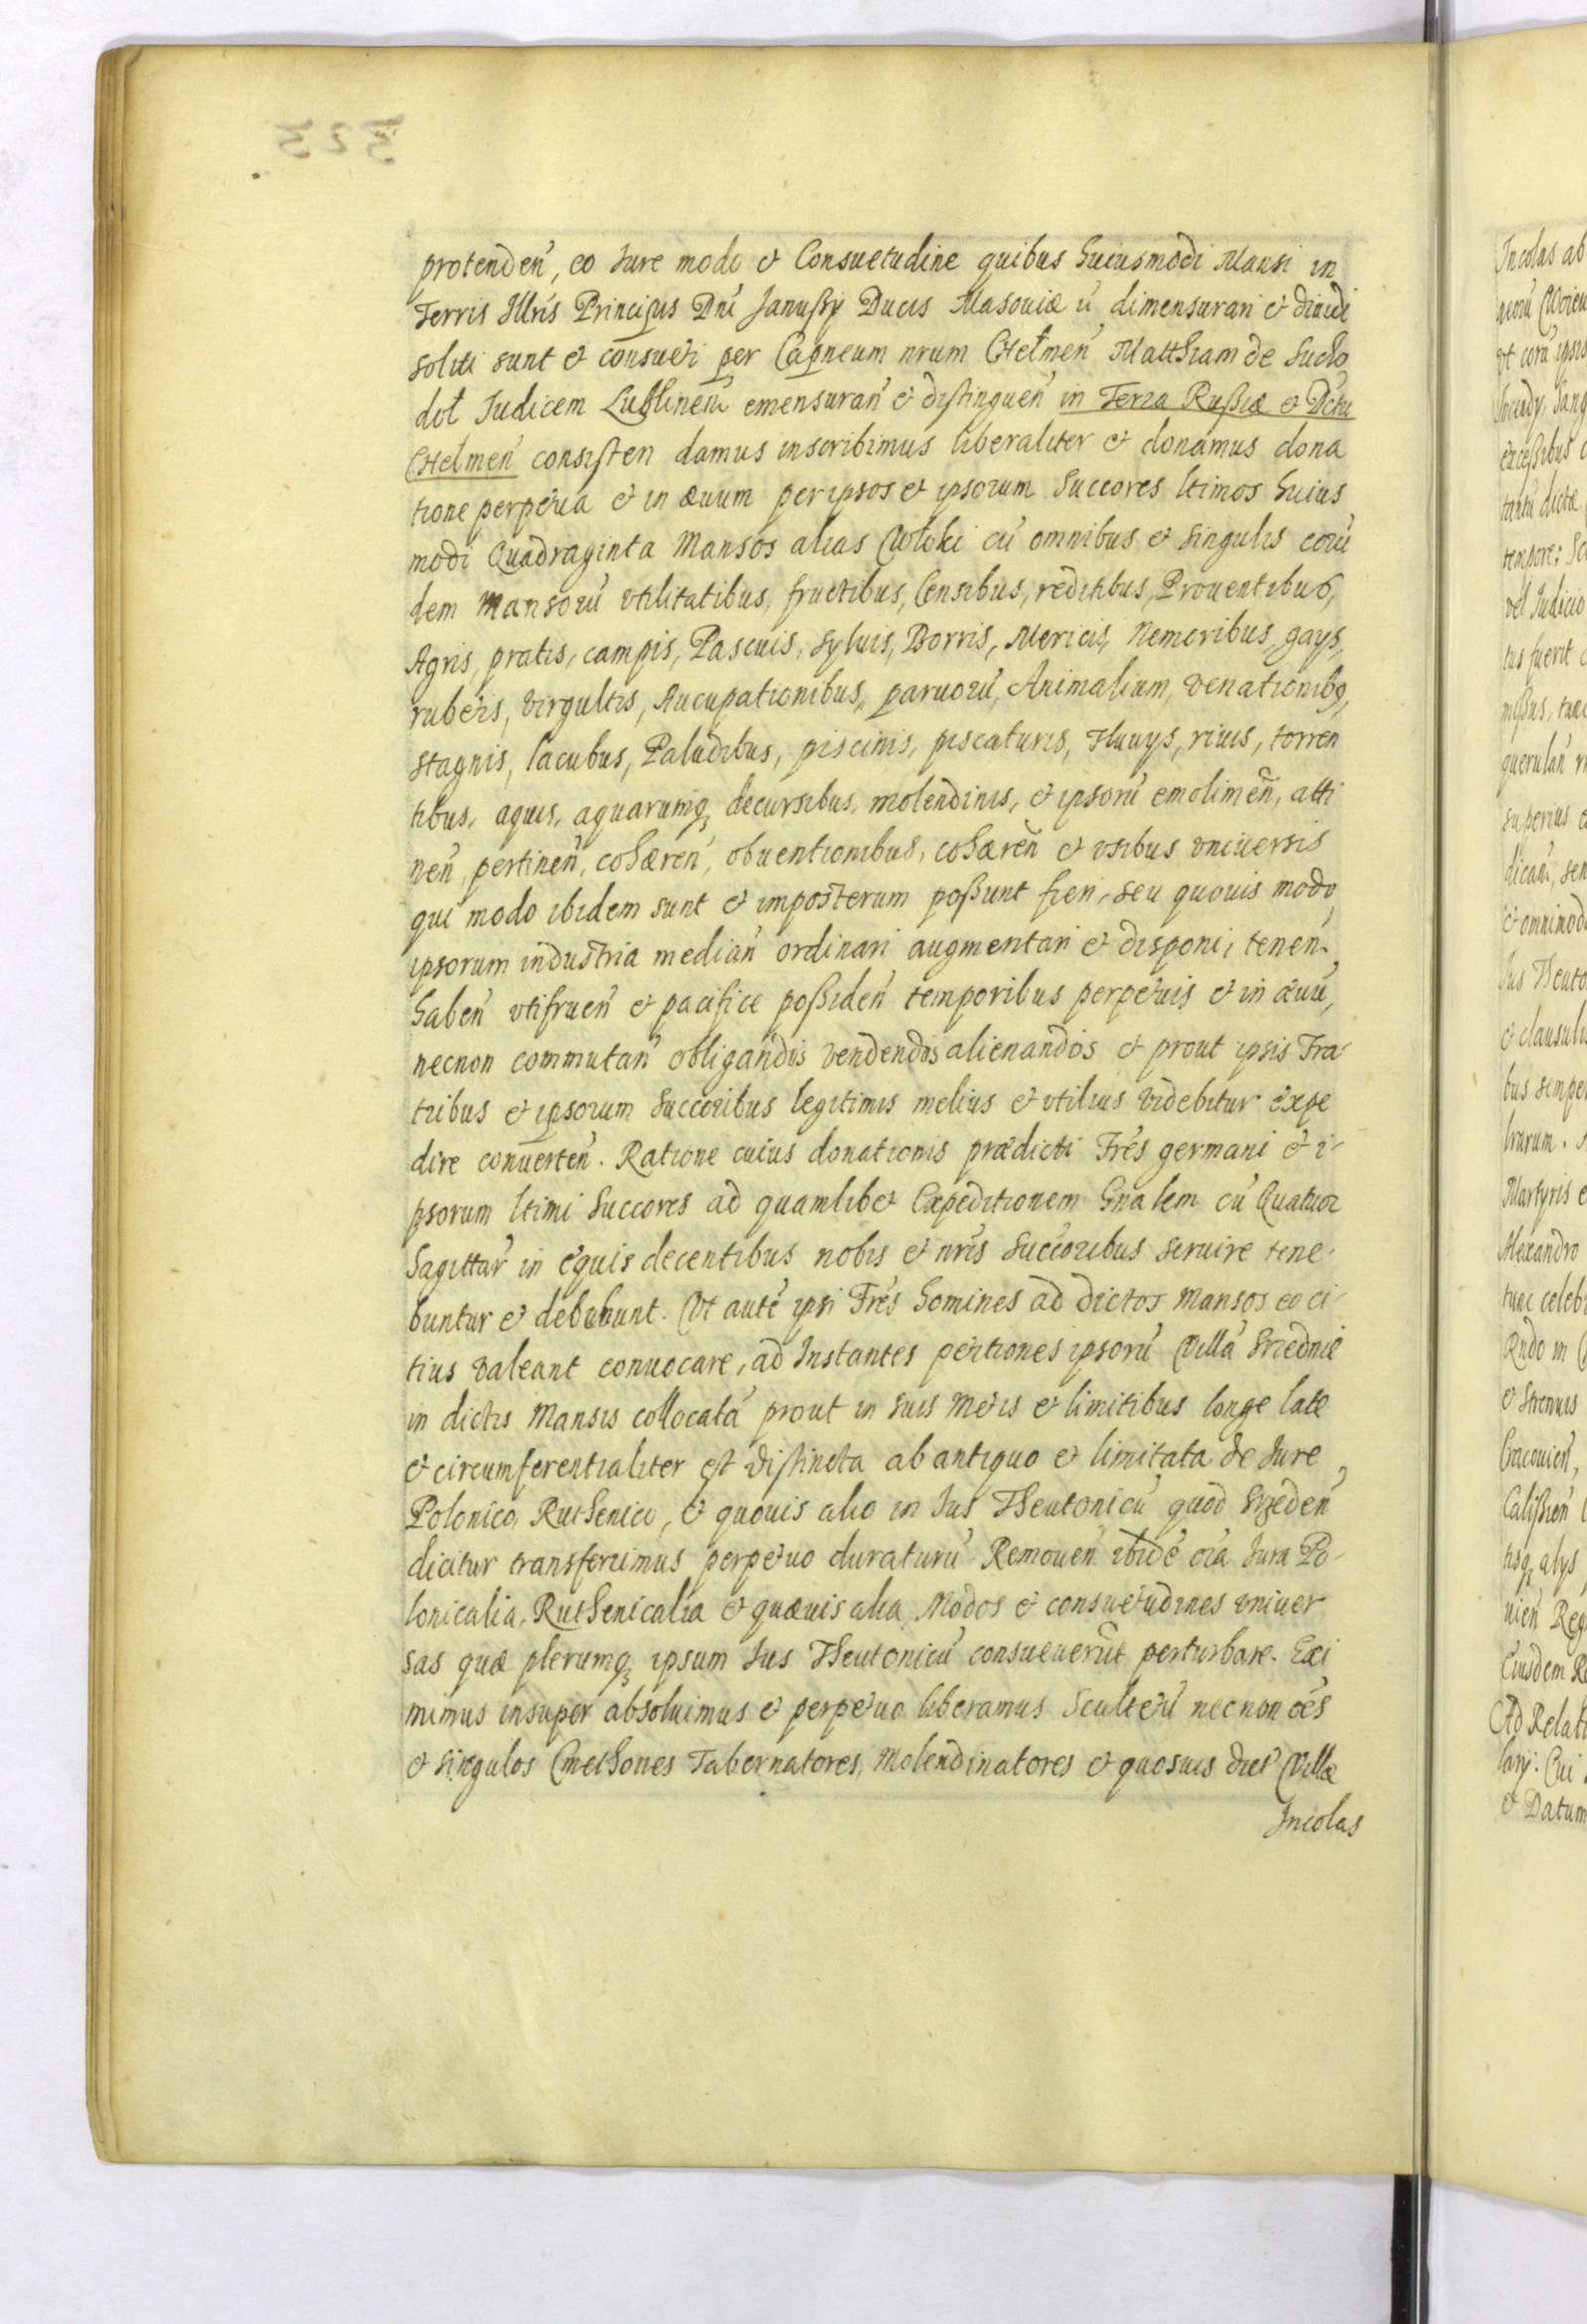 protenden, eo Jure modo et Consuetudine quibus huiusmodi Mansi in
Terris Illris Principis Dni Janussÿ Ducis Masouiæ dimensurari et diuidi
soliti sunt et consueti per Capneum nrum Chelmen Matthiam de Sucho
dol Judicem Lublinen emensuran et distinguen in Terra Russiæ et Dctu
Chelmen consisten damus inscribimus liberaliter et donamus dona
tione perpetua et in æuum per ipsos et ipsorum Succores ltimos huius
modi Quadraginta Mansos alias Wloki cu omnibus et singulis eoru
dem Mansoru vtilitatibus, fructibus, Censibus, reditibus, Prouentibus,
Agris, pratis, campis, Pascuis, Syluis, Borris, Mericis, Nemoribus, gays,
rubetis, virgultis, Aucupationibus, paruoru, Animalium, venationibq,
stagnis, lacubus, Paludibus, piscinis, piscaturis, Fluuys, riuis, torren
tibus, aquis, aquarumq decursibus, molendinis, et ipsoru emolimen, atti
nen, pertinen, cohæren, obuentionibus, cohæren et vsibus vniuersis
qui modo ibidem sunt et imposterum possunt fieri, seu quouis modo,
ipsorum industria median ordinari augmentari et disponi, tenen
haben vtifruen et pacifice possiden temporibus perpetuis et in æuu,
necnon commutan obligandis vendendis alienandos et prout ipsis Fra-
tribus et ipsorum Succoribus legitimis melius et vtilius videbitur expe
dire conuerten. Ratione cuius donationis prædicti Fres germani et i-
psorum ltimi Succores ad quamlibet Expeditionem Gnalem cu Quatuor
Sagittar in equis decentibus nobis et nris Succoribus seruire tene-
buntur et debebunt. Vt aute ipsi Fres homines ad dictos Mansos eo ci-
tius valeant conuocare, ad Instantes petitiones ipsoru Villa Sriednie
in dictis Mansis collocata prout in suis Metis et limitibus longe late
et circumferentialiter est distincta ab antiquo et limitata de Jure
Polonico, Ruthenico, et quouis alio in Jus Theutonicu quod Srzeden
dicitur transferimus perpetuo duraturu Remouen ibide oia Jura Po-
lonicalia, Ruthenicalia et quæuis alia, Modos et consuetudines vniuer
sas quæ plerumq ipsum Jus Theutonicu consueuerut perturbare. Exi
mimus insuper absoluimus et perpetuo liberamus Scultetu necnon oes
et singulos Cmethones Tabernatores, Molendinatores et quosuis dict Villæ
Incolas